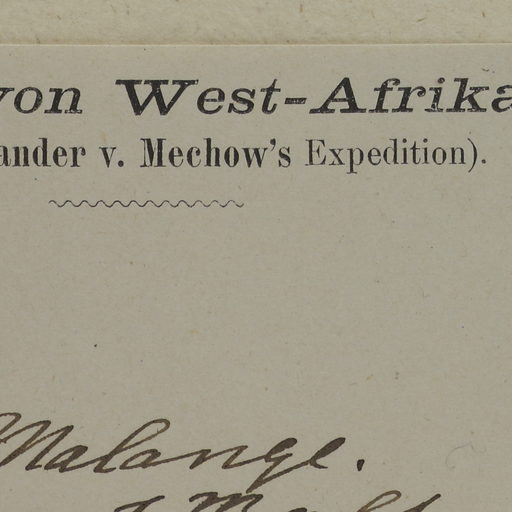 von West-Afrika
ander v. Mechow's Expedition).
Malange.